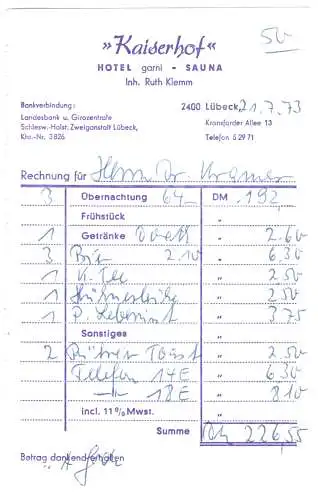 50
»Kaiserhof«
HOTEL garni - SAUNA
Inh. Ruth Klemm
Bankverbindung:
Landesbank u. Girozentrale
Schlesw.-Holst. Zweiganstalt Lübeck,
Kto.-Nr. 3826
2400 Lübeck, 21.7.73
Kronsforder Allee 13
Telefon 5 29 71
Rechnung für Herrn Dr. Kramer
3 Übernachtung 64.- DM 192
Frühstück "
1 Getränke " 2.60
3 Bier 2.10 " 6.30
1 K. Tee " 2.50
1 " 2.50
1 P. " 3.75
Sonstiges "
2 Toast " 2.50
Telefon 14 E " 6.30
-"- 18 E " 8.10
incl. 11 % Mwst. "
Summe DM 226,55
Betrag dankend erhalten